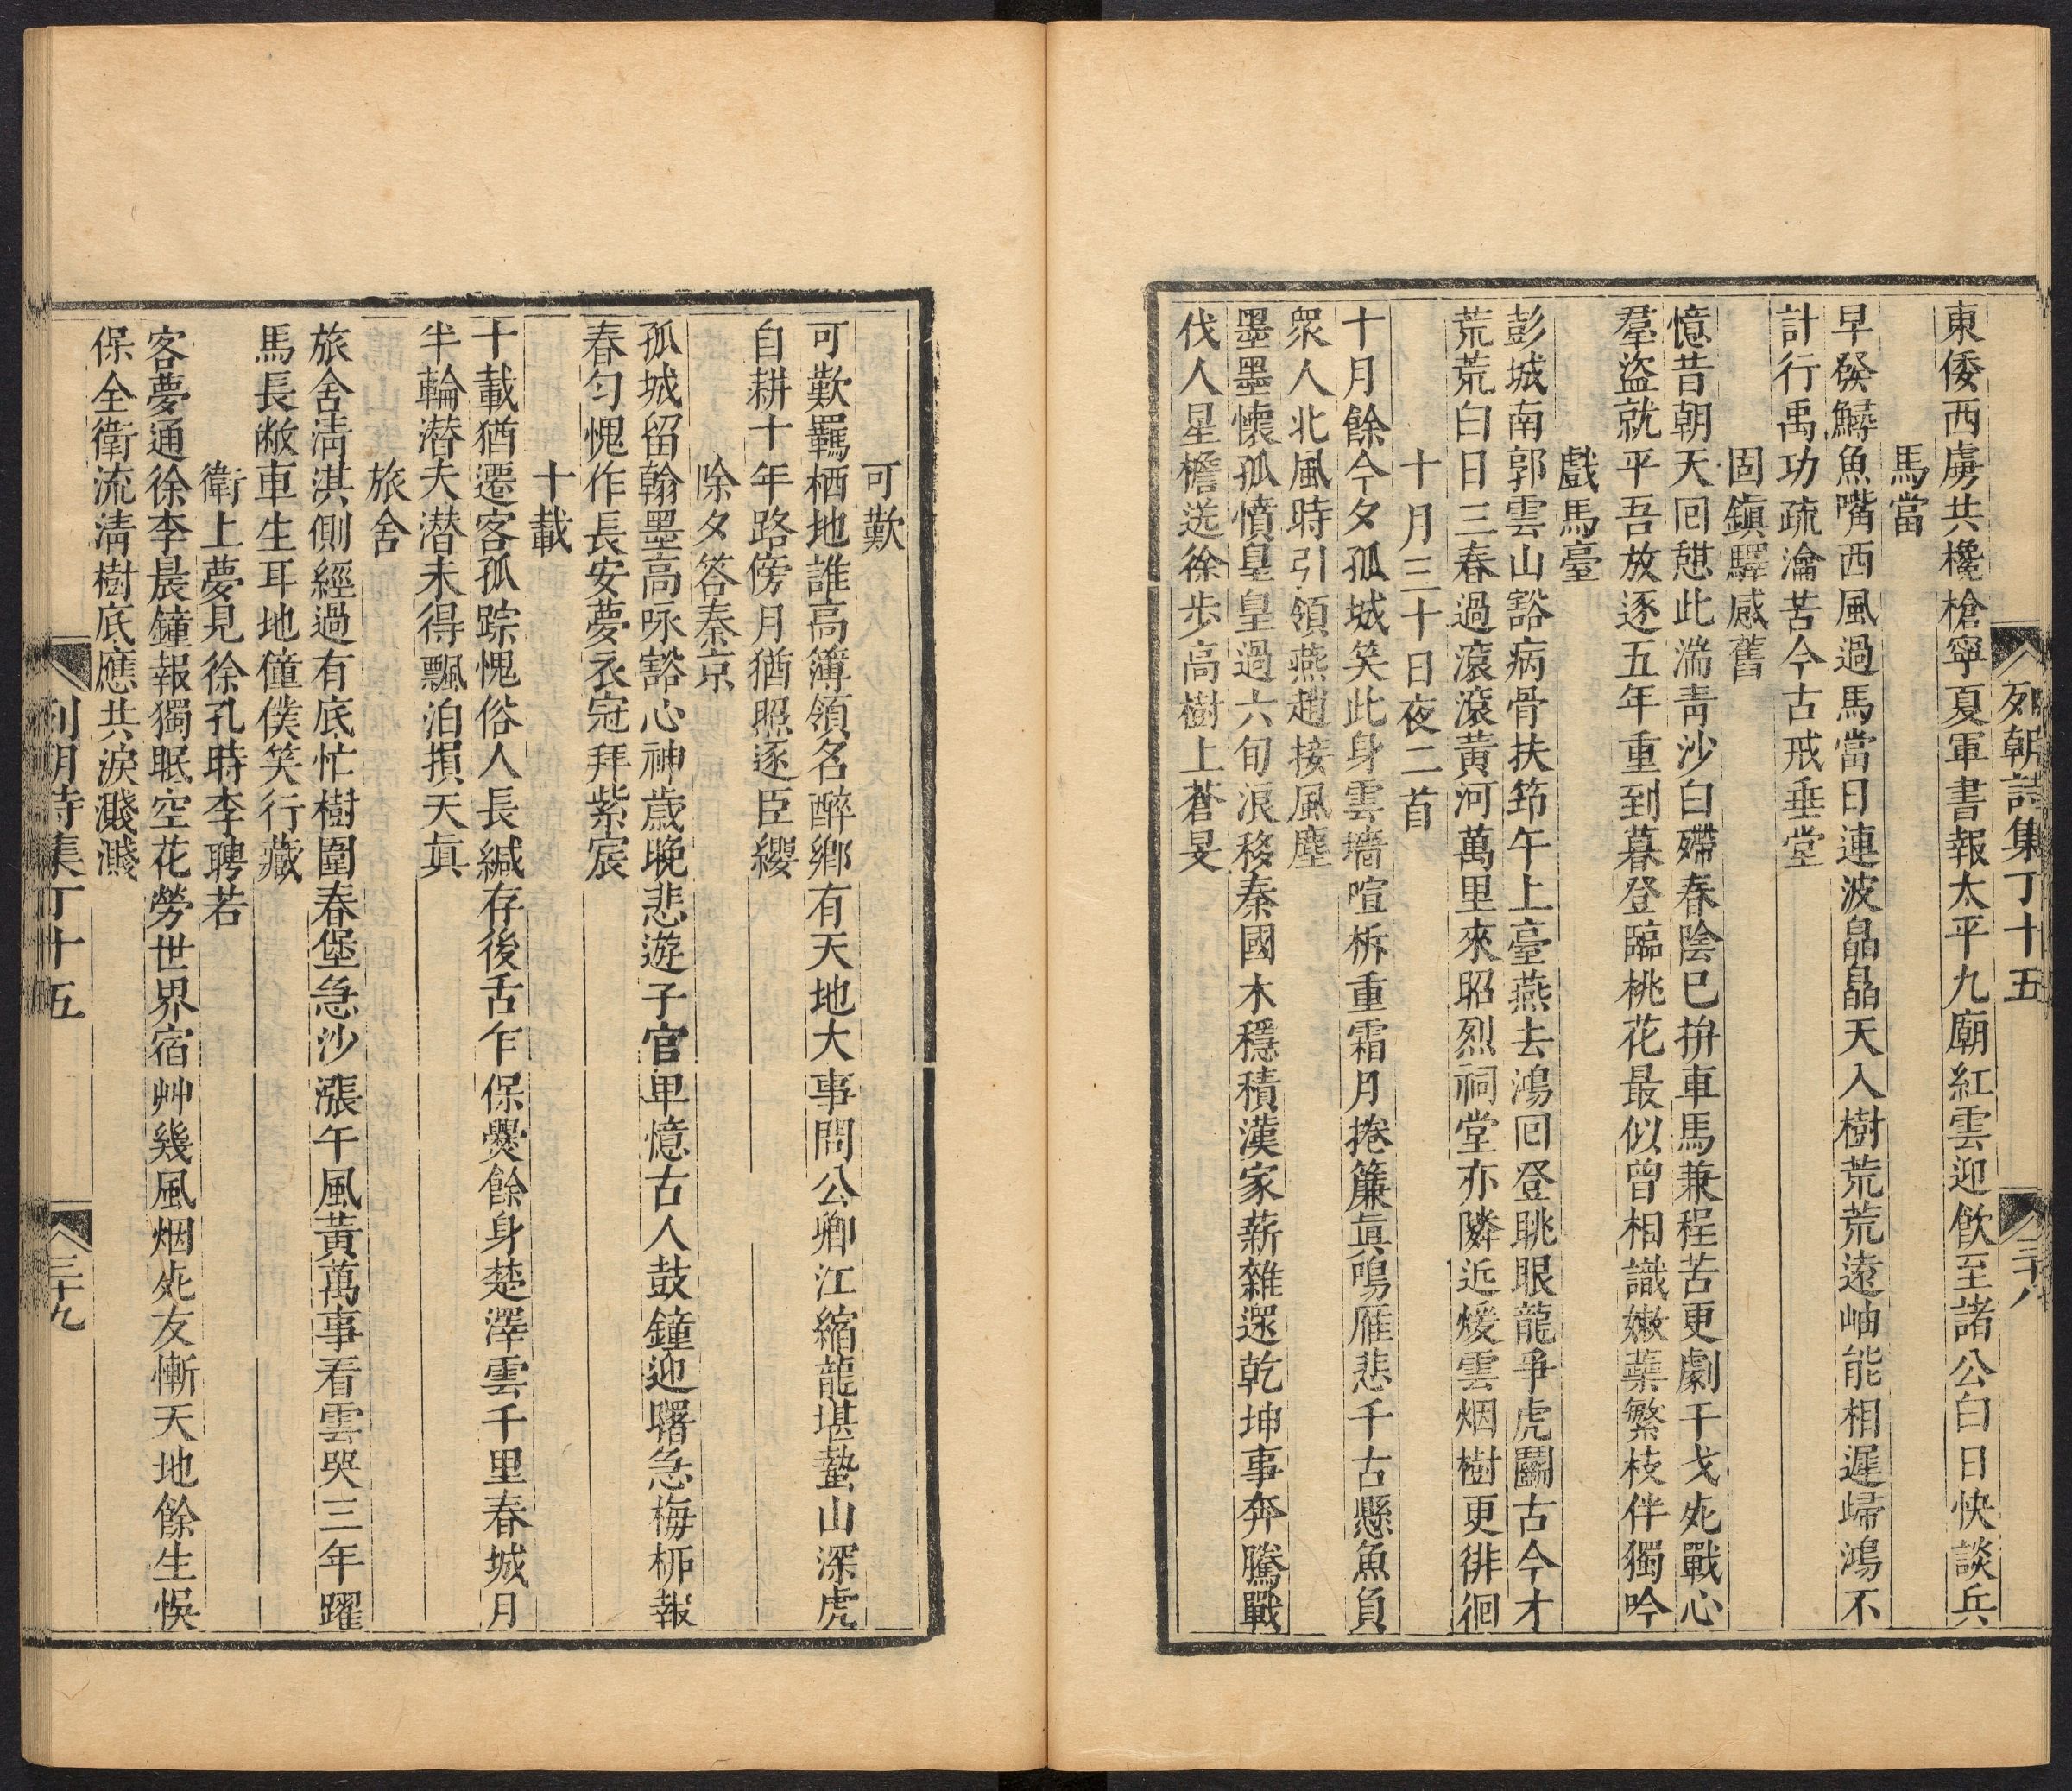 列朝詩集丁十五
三十八
東倭西虜共欃槍寧夏軍書報太平九廟紅雲迎飲至諸公白日快談兵
馬當
早發鱘魚嘴西風過馬當日連波皛皛天入樹荒荒遠岫能相遲歸鴻不
計行禹功疏瀹苦今古戒垂堂
固鎮驛感舊
憶昔朝天回憇此湍靑沙白殢春陰已拚車馬兼程苦更劇干戈死戰心
羣盜就平吾放逐五年重到暮登臨桃花最似曾相識嫩蘂繁枝伴獨吟
戲馬臺
彭城南郭雲山豁病骨扶筇午上臺燕去鴻回登眺眼龍爭虎鬬古今才
荒荒白日三春過滾滾黃河萬里來昭烈祠堂亦隣近煖雲烟樹更徘徊
十月三十日夜二首
十月餘今夕孤城笑此身雲墻喧柝重霜月捲簾眞鳴雁悲千古懸魚負
衆人北風時引領燕趙接風塵
墨墨懷孤憤皇皇過六旬浪移秦國木穩積漢家薪雜遝乾坤事奔騰戰
伐人星檐迭徐步高樹上蒼旻
可歎
可歎羈栖地誰高簿領名醉鄉有天地大事問公卿江縮龍堪蟄山深虎
自耕十年路傍月猶照逐臣纓
除夕答秦京
孤城留翰墨高咏豁心神歲晚悲遊子官卑憶古人鼓鐘迎曙急梅柳報
春勻愧作長安夢衣冠拜紫宸
十載
十載猶遷客孤踪愧俗人長緘存後舌乍保爨餘身楚澤雲千里春城月
半輪潛夫潛未得飄泊損天眞
旅舍
旅舍淸淇側經過有底忙樹圍春堡急沙漲午風黃萬事看雲哭三年躍
馬長敝車生耳地僮僕笑行藏
衛上夢見徐孔時李聘若
客夢通徐李晨鐘報獨眠空花勞世界宿艸幾風烟死友慚天地餘生悞
保全衛流淸樹底應共淚濺濺
列朝詩集丁十五
三十九